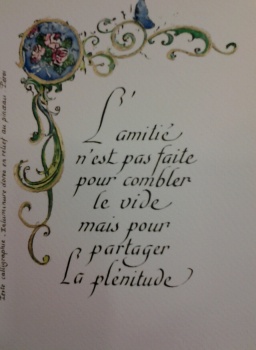 L'amitié
n'est pas faite
pour combler
le vide
mais pour
partager
La plénitude
Texte calligraphié. Enluminure dorée en relief au pinceau